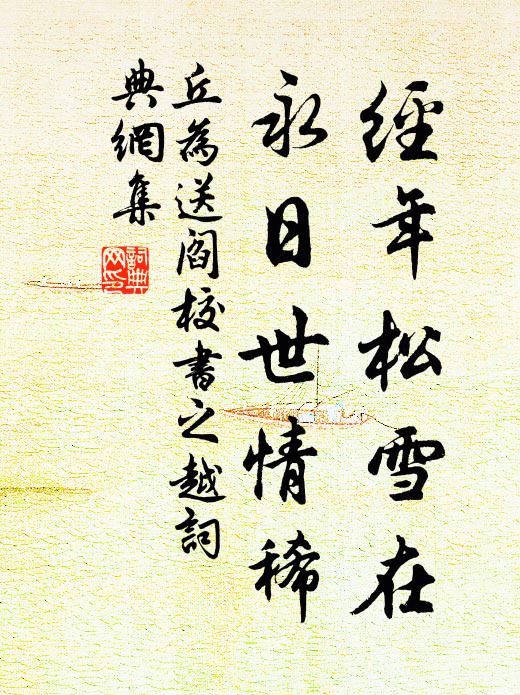 經年松雪在
永日世情稀
丘為送閻校書之越詞
典網集
詞典
网印